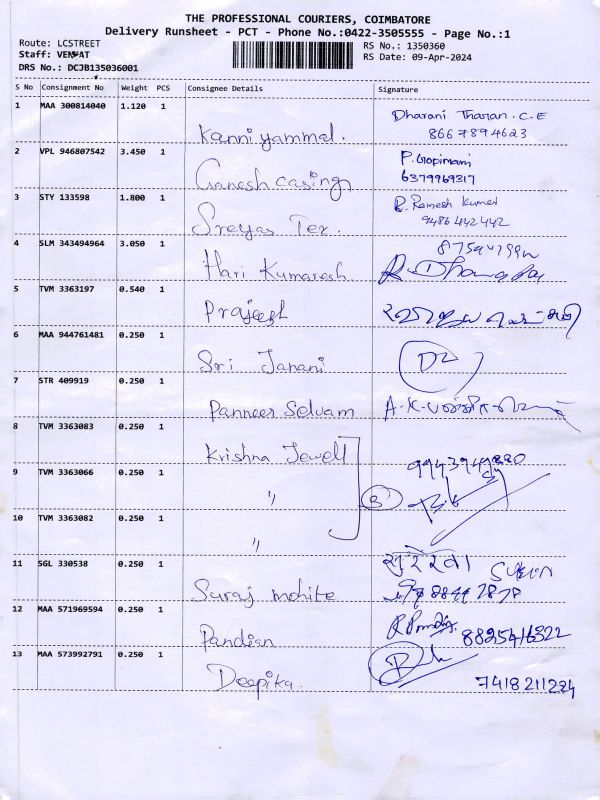 THE PROFESSIONAL COURIERS, COIMBATORE
Delivery Runsheet - PCT - Phone No.:0422-3505555 - Page No.:1
Route: LCSTREET
RS No.: 1350360
Staff: VENKAT
RS Date: 09-Apr-2024
DRS No.: DCJB135036001
S No Consignment No Weight PCS Consignee Details Signature
1 MAA 300814040 1.120 1
Kanniyammal.
Dharani Tharan. C. E
8667894623
2 VPL 946807542 3.450 1
Ganesh casing
P. Gopimani
6379969317
3 STY 133598 1.800 1
Sreyas Tex.
R. Ramesh Kumar
9486442442
4 SLM 343494964 3.050 1
Hari Kumaresh
5 TVM 3363197 0.540 1
Prajeesh
6 MAA 944761481 0.250 1
Sri Janani
7 STR 409919 0.250 1
Panneer Selvam
A.K.
8 TVM 3363083 0.250 1
Krishna Jewell
9 TVM 3363066 0.250 1
"
B
10 TVM 3363082 0.250 1
"
11 SGL 330538 0.250 1
Suraj mohite
12 MAA 571969594 0.250 1
Pandian
8825416322
13 MAA 573992791 0.250 1
Deepika.
7418211224